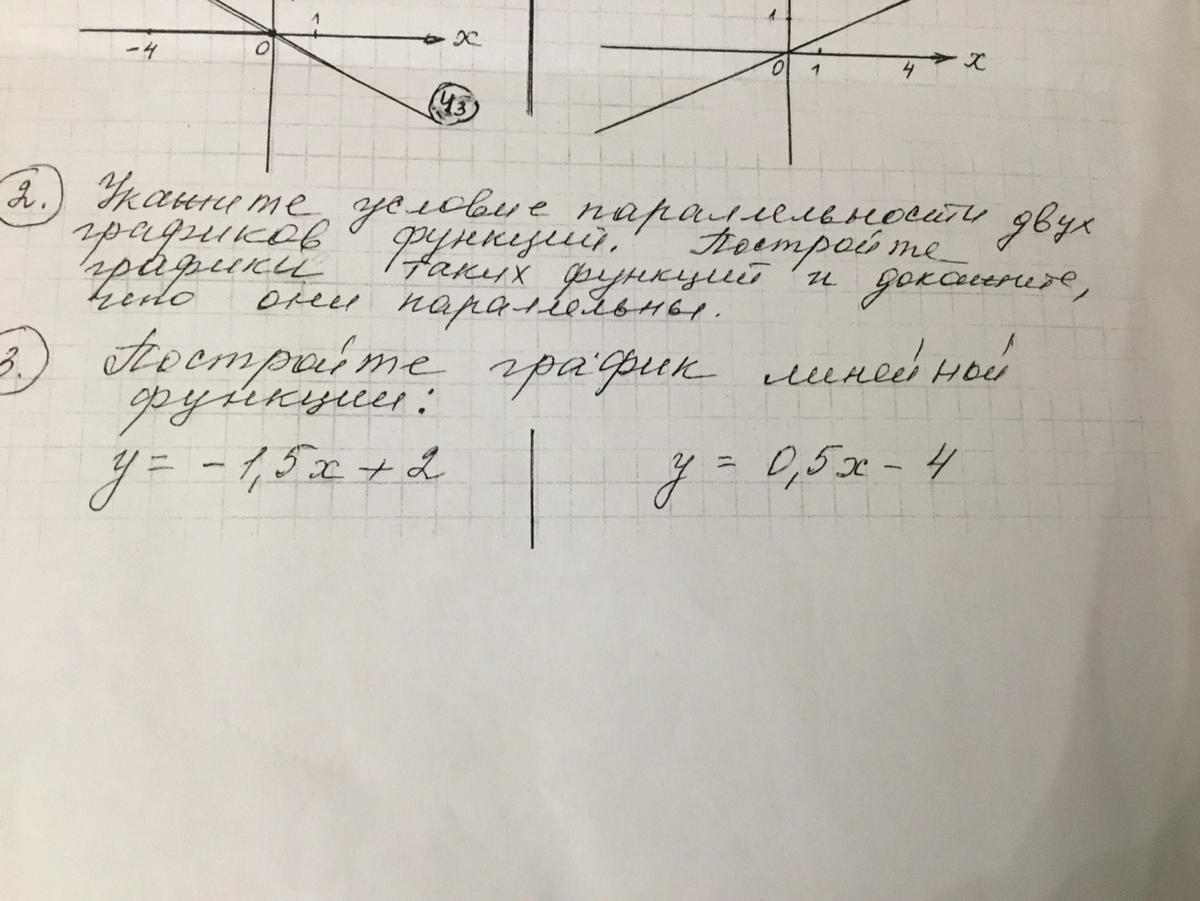 1 1
-4 0 x 0 1 4 x
y₃
2. Укажите условие параллельности двух
графиков функций. Постройте
графики таких функций и докажите,
что они параллельны.
3. Постройте график линейной
функции:
y = -1,5x + 2 y = 0,5x - 4